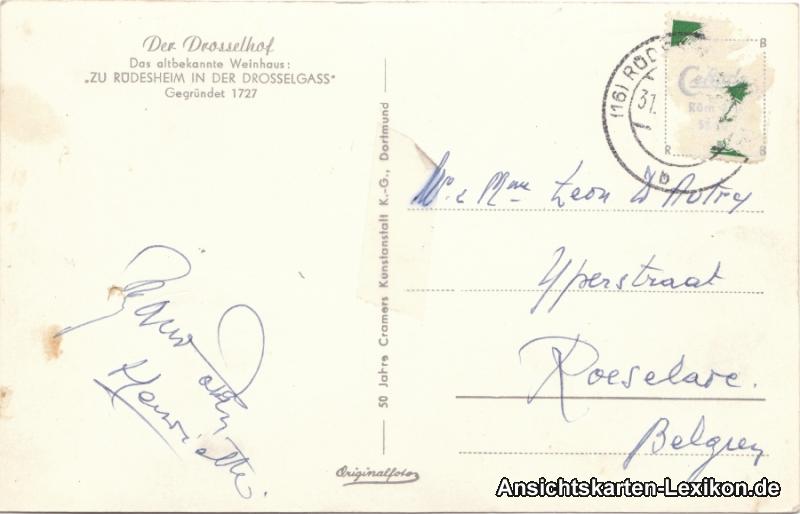 Der Drosselhof
Das altbekannte Weinhaus:
„ZU RÜDESHEIM IN DER DROSSELGASS"
Gegründet 1727
50 Jahre Cramers Kunstanstalt K.-G., Dortmund
(16) RÜDES
31.
b
B
R B
Mr & Mme Leon D'Autry
Yperstraat
Roeselare.
Belgien
Henriette.
Originalfoto
Ansichtskarten-Lexikon.de